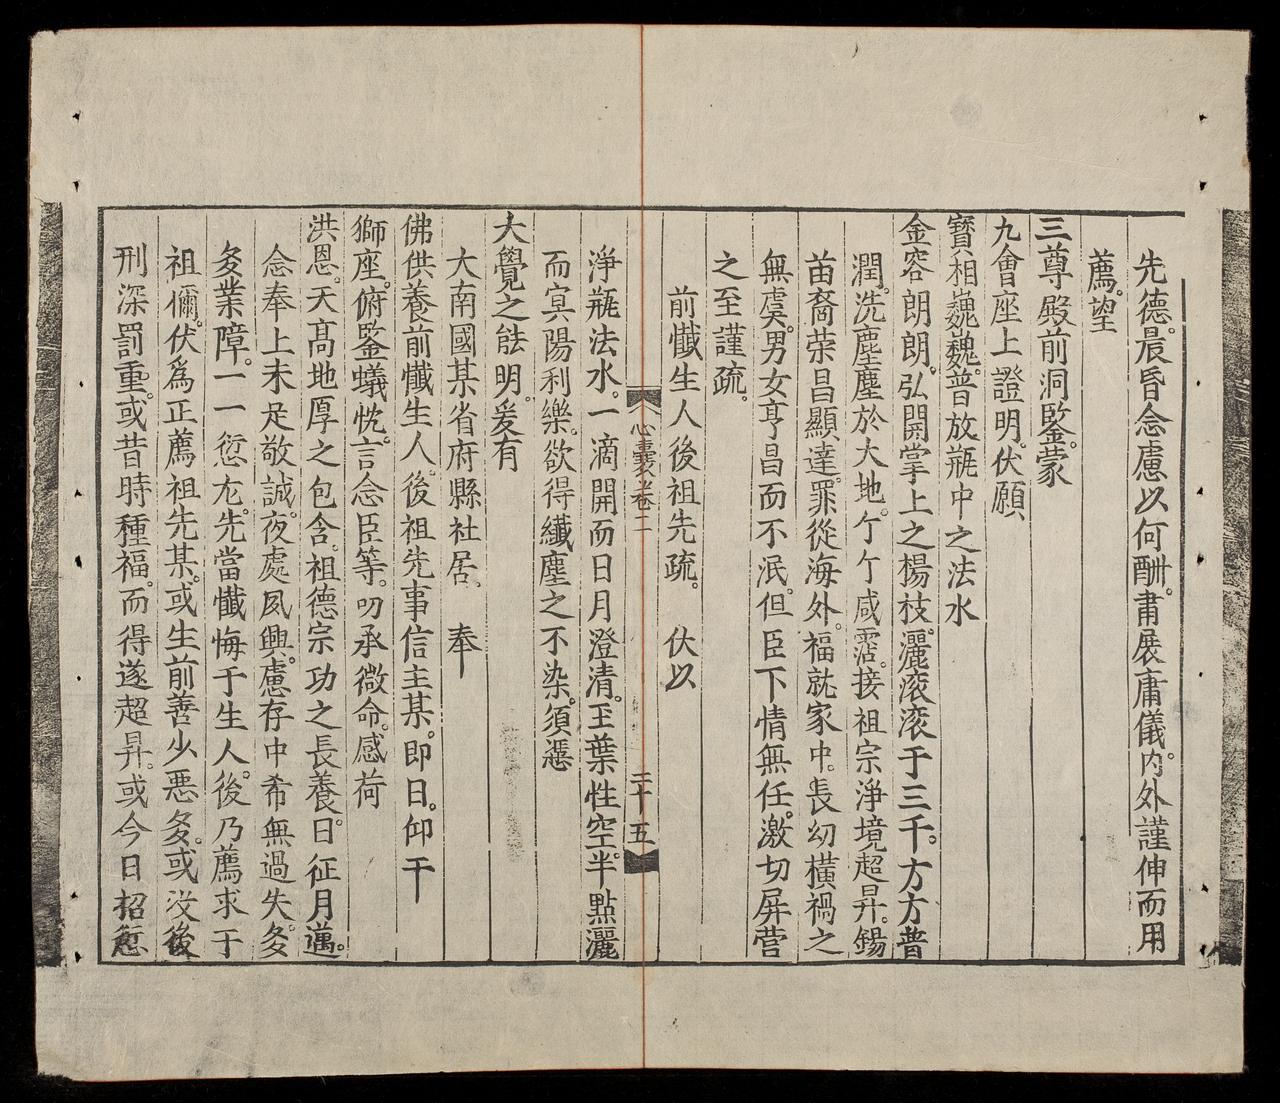 先德。晨昏念慮以何酬。肅展庸儀。内外謹伸而用
薦。望
三尊殿前洞鍳。蒙
九會座上證明。伏願
寶相巍巍。普放瓶中之法水
金容朗朗。弘開掌上之楊枝。灑滚滚于三千。方方普
潤。洗塵塵於大地。亇亇咸霑。接祖宗淨境超昇。錫
苗裔荣昌顯達。罪從海外。福就家中。長幼橫禍之
無虞。男女亨昌而不泯。但臣下情無任。激切屏营
之至謹疏。
前懺生人後祖先疏。 伏以
心囊 卷二 二十五
淨瓶法水。一滴開而日月澄清。玉葉性空。半點灑
而㝠陽利樂。欲得纖塵之不染。須慿
大覺之能明。爰有
大南國某省府縣社居。 奉
佛供養前懺生人。後祖先事信主某。即日。仰干
獅座。俯鍳蟻忱。言念臣等。叨承微命。感荷
洪恩。天髙地厚之包含。祖德宗功之長養。日征月邁。
念奉上未足敬誠。夜處夙興。慮存中希無過失。多
多業障。一一愆尤。先當懺悔于生人。後乃薦求于
祖禰。伏爲正薦祖先某。或生前善少惡多。或没後
刑深罰重。或昔時種福。而得遂超昇。或今日招愆